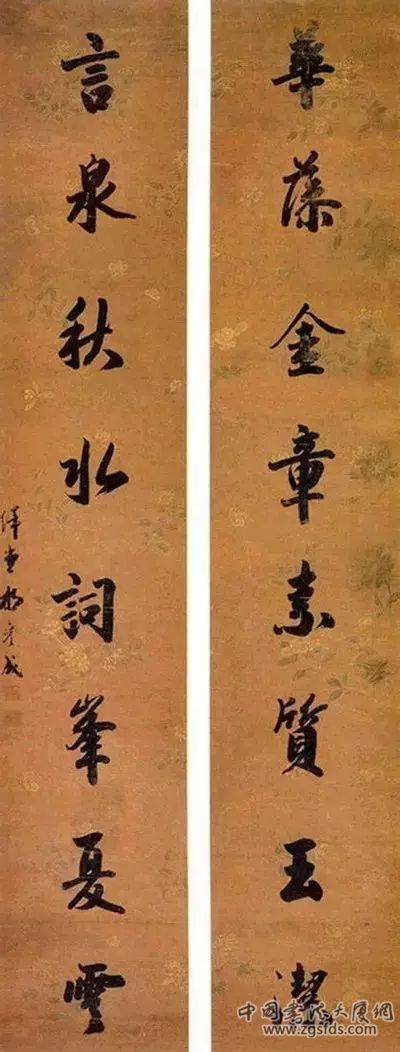 華藻金章素質玉潔
言泉秋水詞峯夏雲
繹堂那彥成
中國書法大廈網
www.zgsfds.com